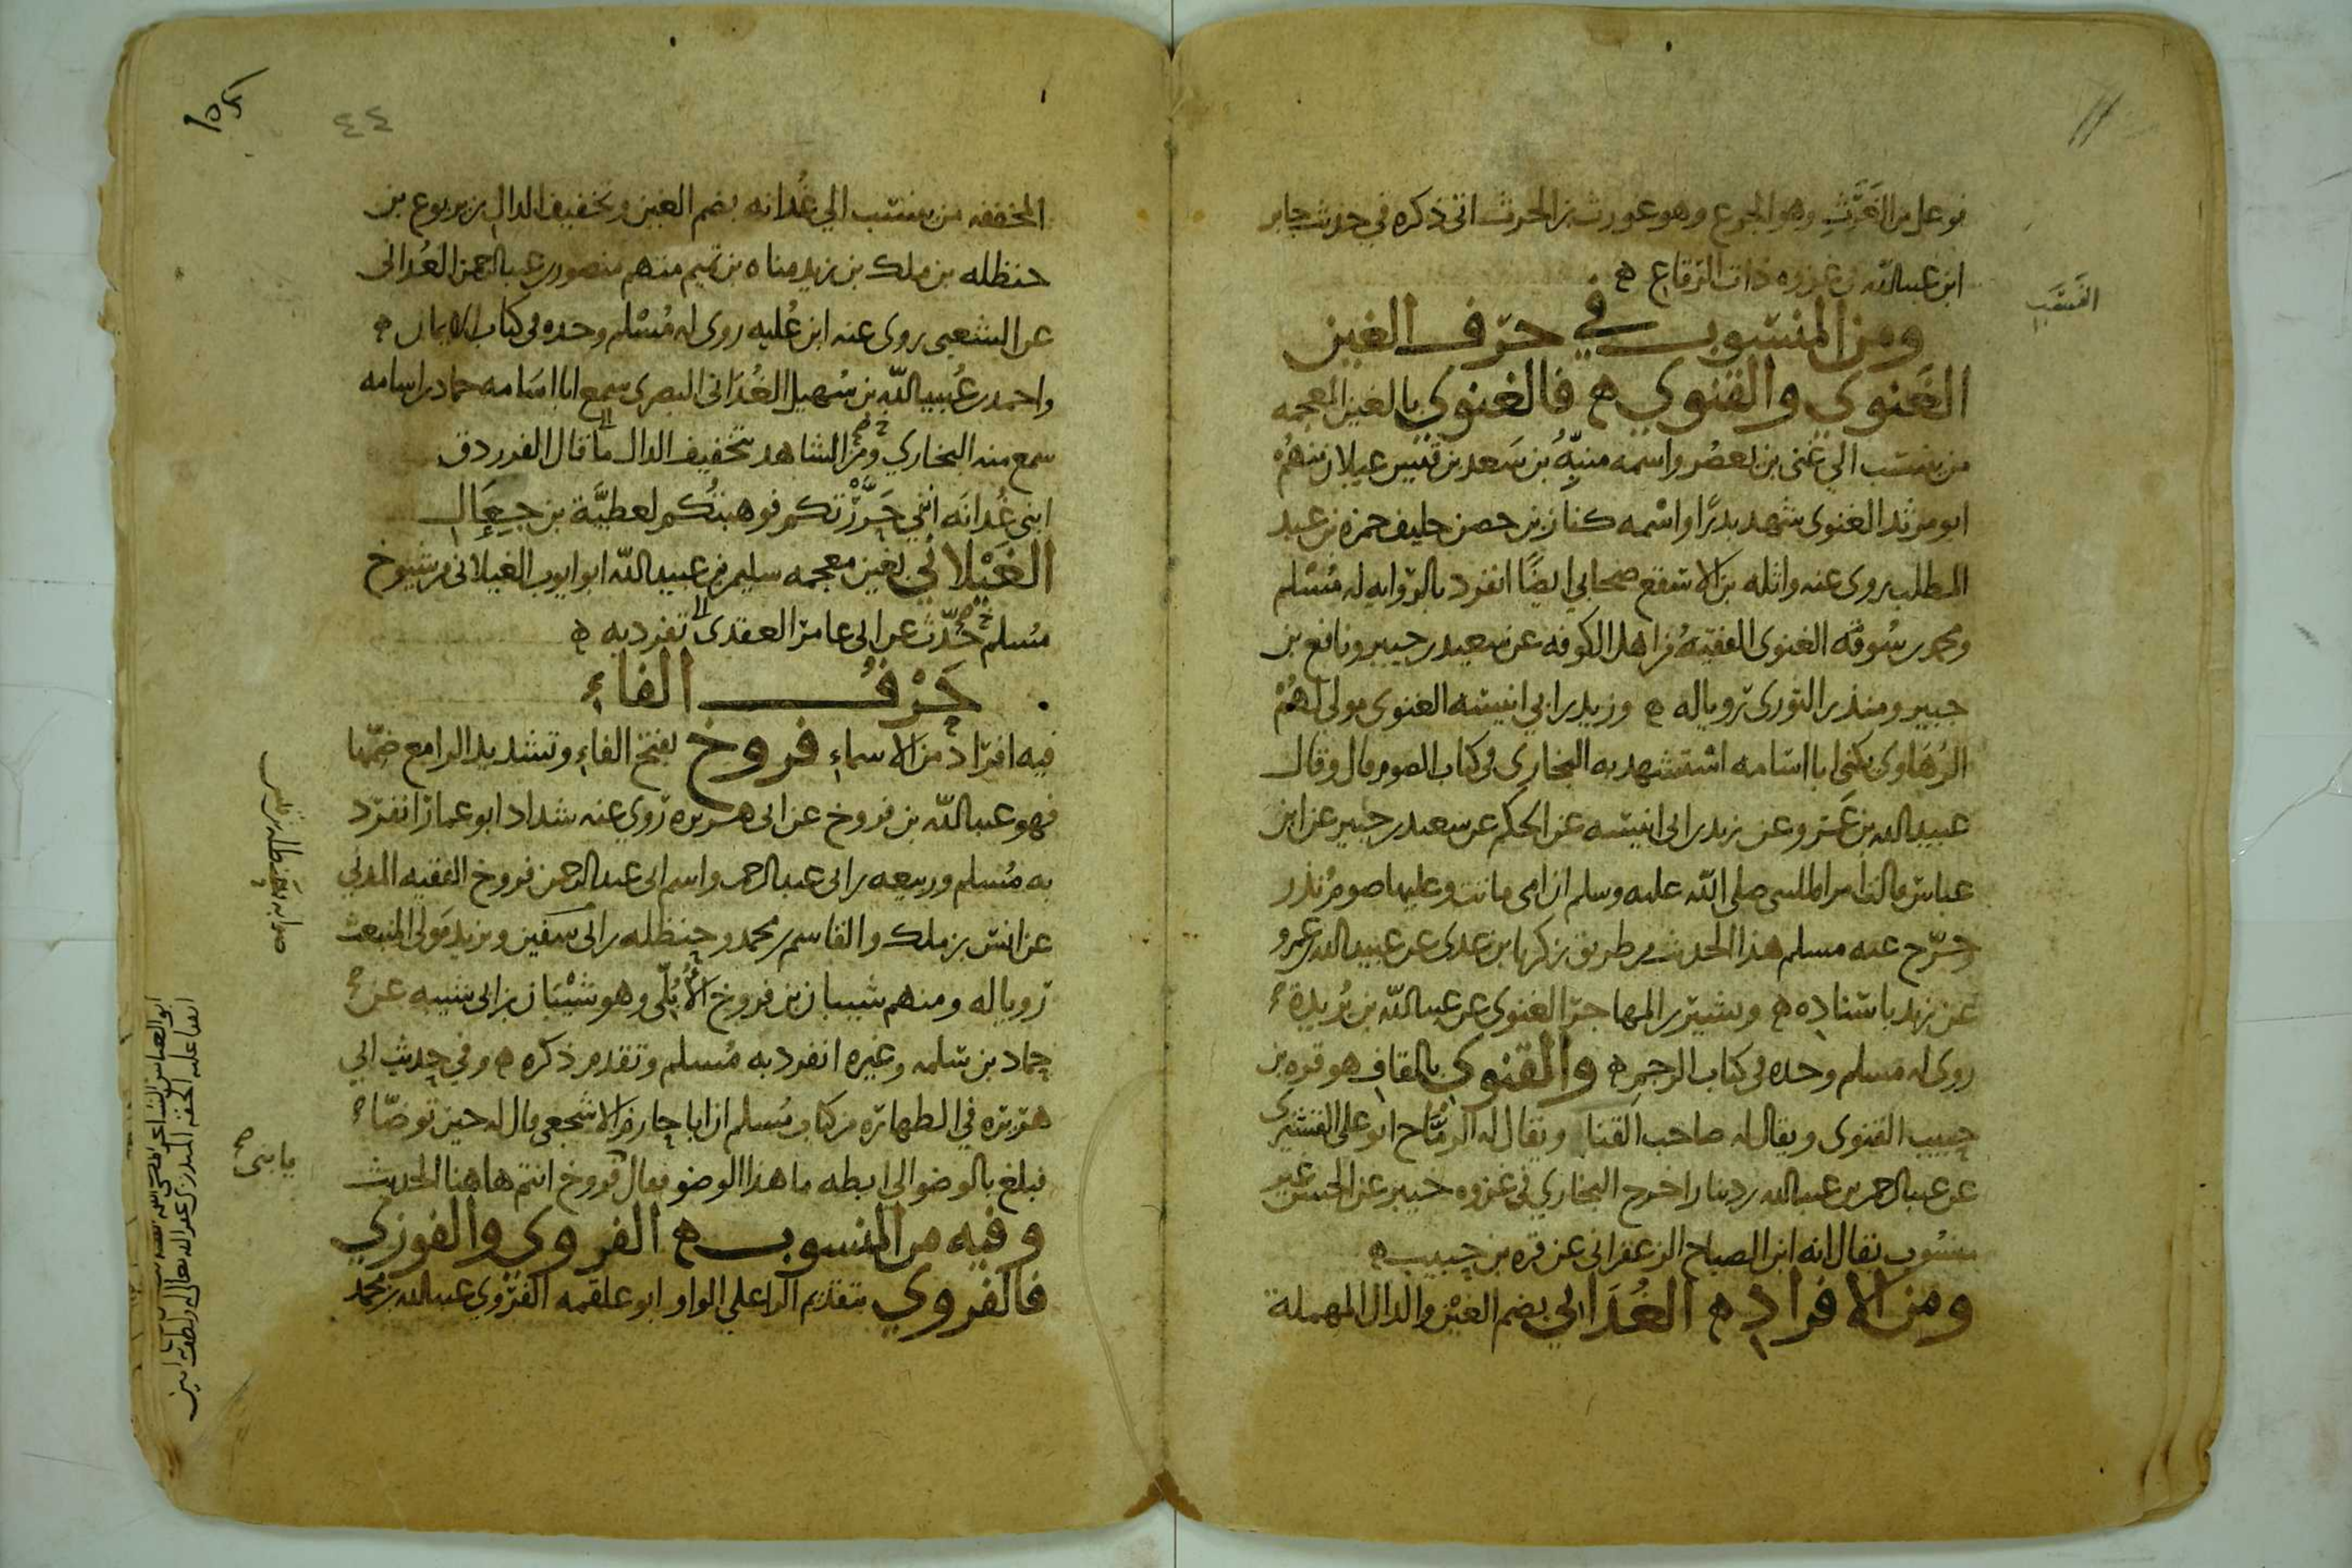 فوعل من الغَرَث وهو الجوع وهو غورث بن الحرث اتى ذكره في حديث جابر
ابن عبد الله في غزوه ذات الرقاع ه
ومن المنسوب في حرف الغين
الغَنَوي والقنوي ه فالغنوي بالغين المعجمه
من ينتسب الي غنى بن يعصُر واسمه منبِّهُ بن سَعد بن قيس عيلان منهُم
ابو مرثد الغنوى شهد بدرًا واسْمه كناز بن حصن حليف حمزه بن عبد
المطلب روى عنه واثله بن الاسقع صحابي ايضًا انفرد بالروايه له مُسْلم
ومحمد بن سُوقه الغنوى الفقيهُ من اهل الكوفه عن سعيد بن جبير ونافع بن
جبير ومنذر الثورى رويا له ه وزيد بن ابي انيسه الغنوى مولى لهُمْ
الرُهاوى يكنى ابا اسامه استشهد به البخارى في كتاب الصوم قال وقال
عبيد الله بن عَمرو عن زيد بن ابى انيسه عن الحكم عن سعيد بن جبير عن ابن
عباس قالت امراه للنبى صلى الله عليه وسلم ان امى ماتت وعليها صوم نذر
وخرّج عنه مسلم هذا الحديث من طريق زكريا بن عدى عن عبيد الله بن عمرو
عن زيد باسناده ه وبشير بن المهاجر الغنوى عن عبد الله بن بُريدة
روى له مسلم وحده في كتاب الرجم ه والقنوي بالقاف هو قره بن
حبيب القنوى ويقال له صاحب القنا ويقال له الرمَّاح ابو على القشيرى
عن عبد الرحمن بن عبد الله بن دينار اخرج البخاري في غزوه خيبر عن الحسن غير
منسُوب يقال انه ابن الصباح الزعفرانى عن قره بن حبيب ه
ومن الافراد ه الغُدَاني بضم الغين والدال المهملة
المخففه من ينتسب الي غُدانه بضم الغين وتخفيف الدال بن يربوع بن
حنظله بن ملك بن زيد مناه بن تميم منهم منصور بن عبد الرحمن الغُدانى
عن الشعبى روى عنه ابن عُليه روى له مُسْلم وحده في كتاب الايمان ه
واحمد بن عُبيد الله بن سُهيل الغُدَانى البصرى سمع ابا اسَامه حماد بن اسامه
سمع منه البخاري ومن الشاهد بتخفيف الدال ما قال الفرزدق
ابنى غُدانَه انني حَرَّرْتكم فوهبتُكم لعطيَّة بن جِعَال
الغَيْلاني بغين معجمه سليم بن عبيد الله ابو ايوب الغيلانى من شيوخ
مُسلم حدّث عن ابى عامر العقدى تفرد به ه
حَرْفُ الفاءِ
فيه افراد من الاسماءِ فروخ بفتح الفاءِ وتشديد الرا مع ضمّها
فهو عبد الله بن فروخ عن ابى هريره روى عنه شداد ابو عمار انفرد
به مُسلم وربيعه بن ابى عبد الرحمن واسم ابى عبد الرحمن فروخ الفقيه المدني
عن انس بن ملك والقاسم بن محمد وحنظله بن ابى سفين ويزيد مَولى المنبعث
رويا له ومنهم شيبان بن فروخ الأُبُلّى وهو شيْبَان بن ابى شيبه عن
حماد بن سلمه وغيره انفرد به مُسلم وتقدم ذكره ه وفي حديث ابي
هريره في الطهاره من كتاب مُسلم ان ابا حازم الاشجعى قال له حين توضّا
فبلغ بالوضو الى ابطه ما هذا الوضو فقال فروخ انتم هاهنا الحديث
يا بنى
وفيه من المنسوب ه الفروي والفوزي
فالفروي بتقديم الرا على الواو ابو علقمه الفَرْوي عبد الله بن محمد